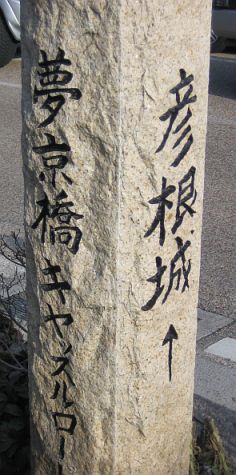 彦根城↑
夢京橋キャッスルロー